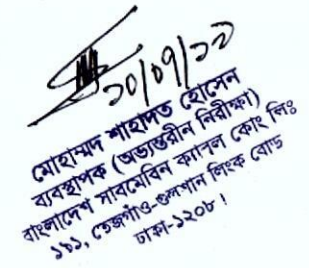 ২০/০৭/২২
মোহাম্মদ শাহাদত হোসেন
ব্যবস্থাপক (অভ্যন্তরীন নিরীক্ষা)
বাংলাদেশ সাবমেরিন ক্যাবল কোং লিঃ
১৯১, তেজগাঁও-গুলশান লিংক রোড
ঢাকা-১২০৮।